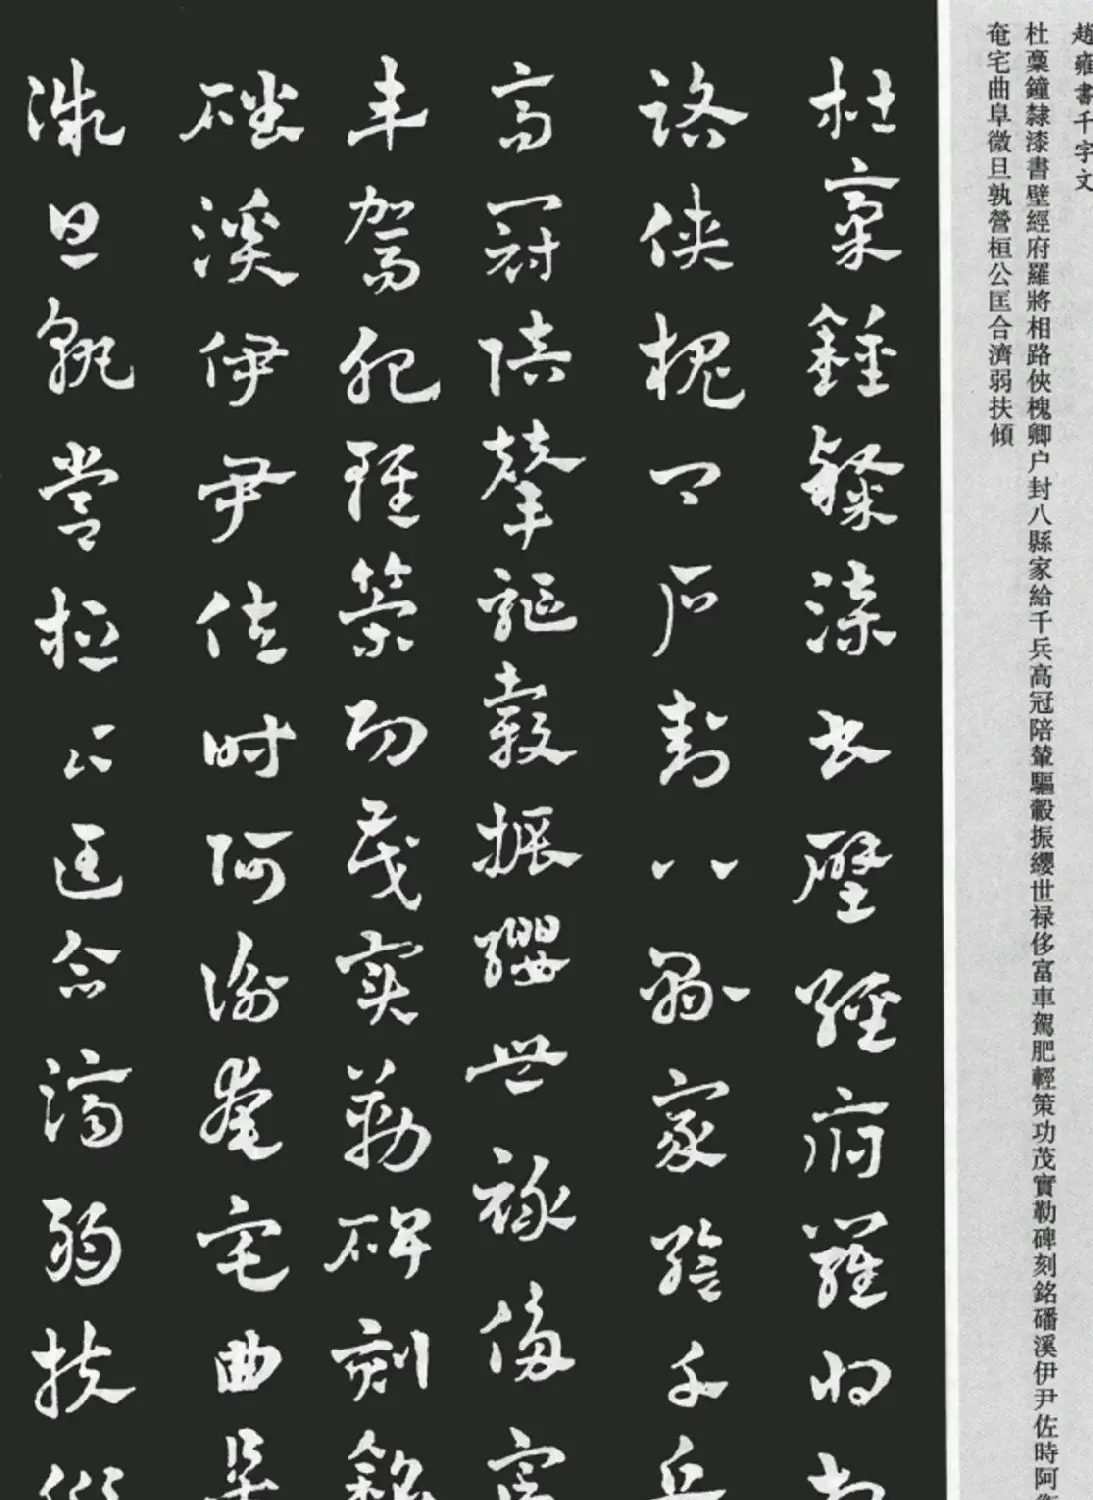 趙雍書千字文
杜稾鐘隸漆書壁經府羅將相路俠槐卿户封八縣家給千兵高冠陪輦驅轂振纓世禄侈富車駕肥輕策功茂實勒碑刻銘磻溪伊尹佐時阿衡
奄宅曲阜微旦孰營桓公匡合濟弱扶傾
杜稾鍾隸漆書壁經府羅將相
路俠槐卿户封八縣家給千兵
高冠陪輦驅轂振纓世禄侈富
車駕肥輕策功茂實勒碑刻銘
磻溪伊尹佐時阿衡奄宅曲阜
微旦孰營桓公匡合濟弱扶傾